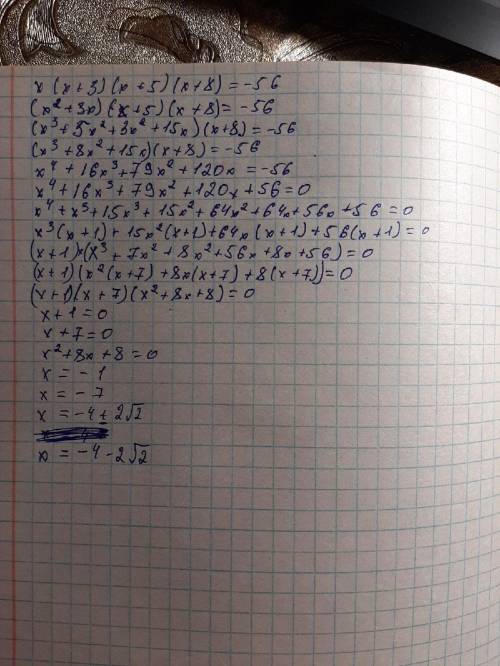 x (x+3) (x+5) (x+8) = -56
(x²+3x) (x+5) (x+8) = -56
(x³+5x²+3x²+15x) (x+8) = -56
(x³+8x²+15x)(x+8) = -56
x⁴+16x³+79x²+120x = -56
x⁴+16x³+79x²+120x+56=0
x⁴+x³+15x³+15x²+64x²+64x+56x+56=0
x³(x+1)+15x²(x+1)+64x(x+1)+56(x+1)=0
(x+1)·(x³+7x²+8x²+56x+8x+56)=0
(x+1)(x²(x+7)+8x(x+7)+8(x+7))=0
(x+1)(x+7)(x²+8x+8)=0
x+1=0
x+7=0
x²+8x+8=0
x = -1
x = -7
x = -4+2√2
x = -4-2√2